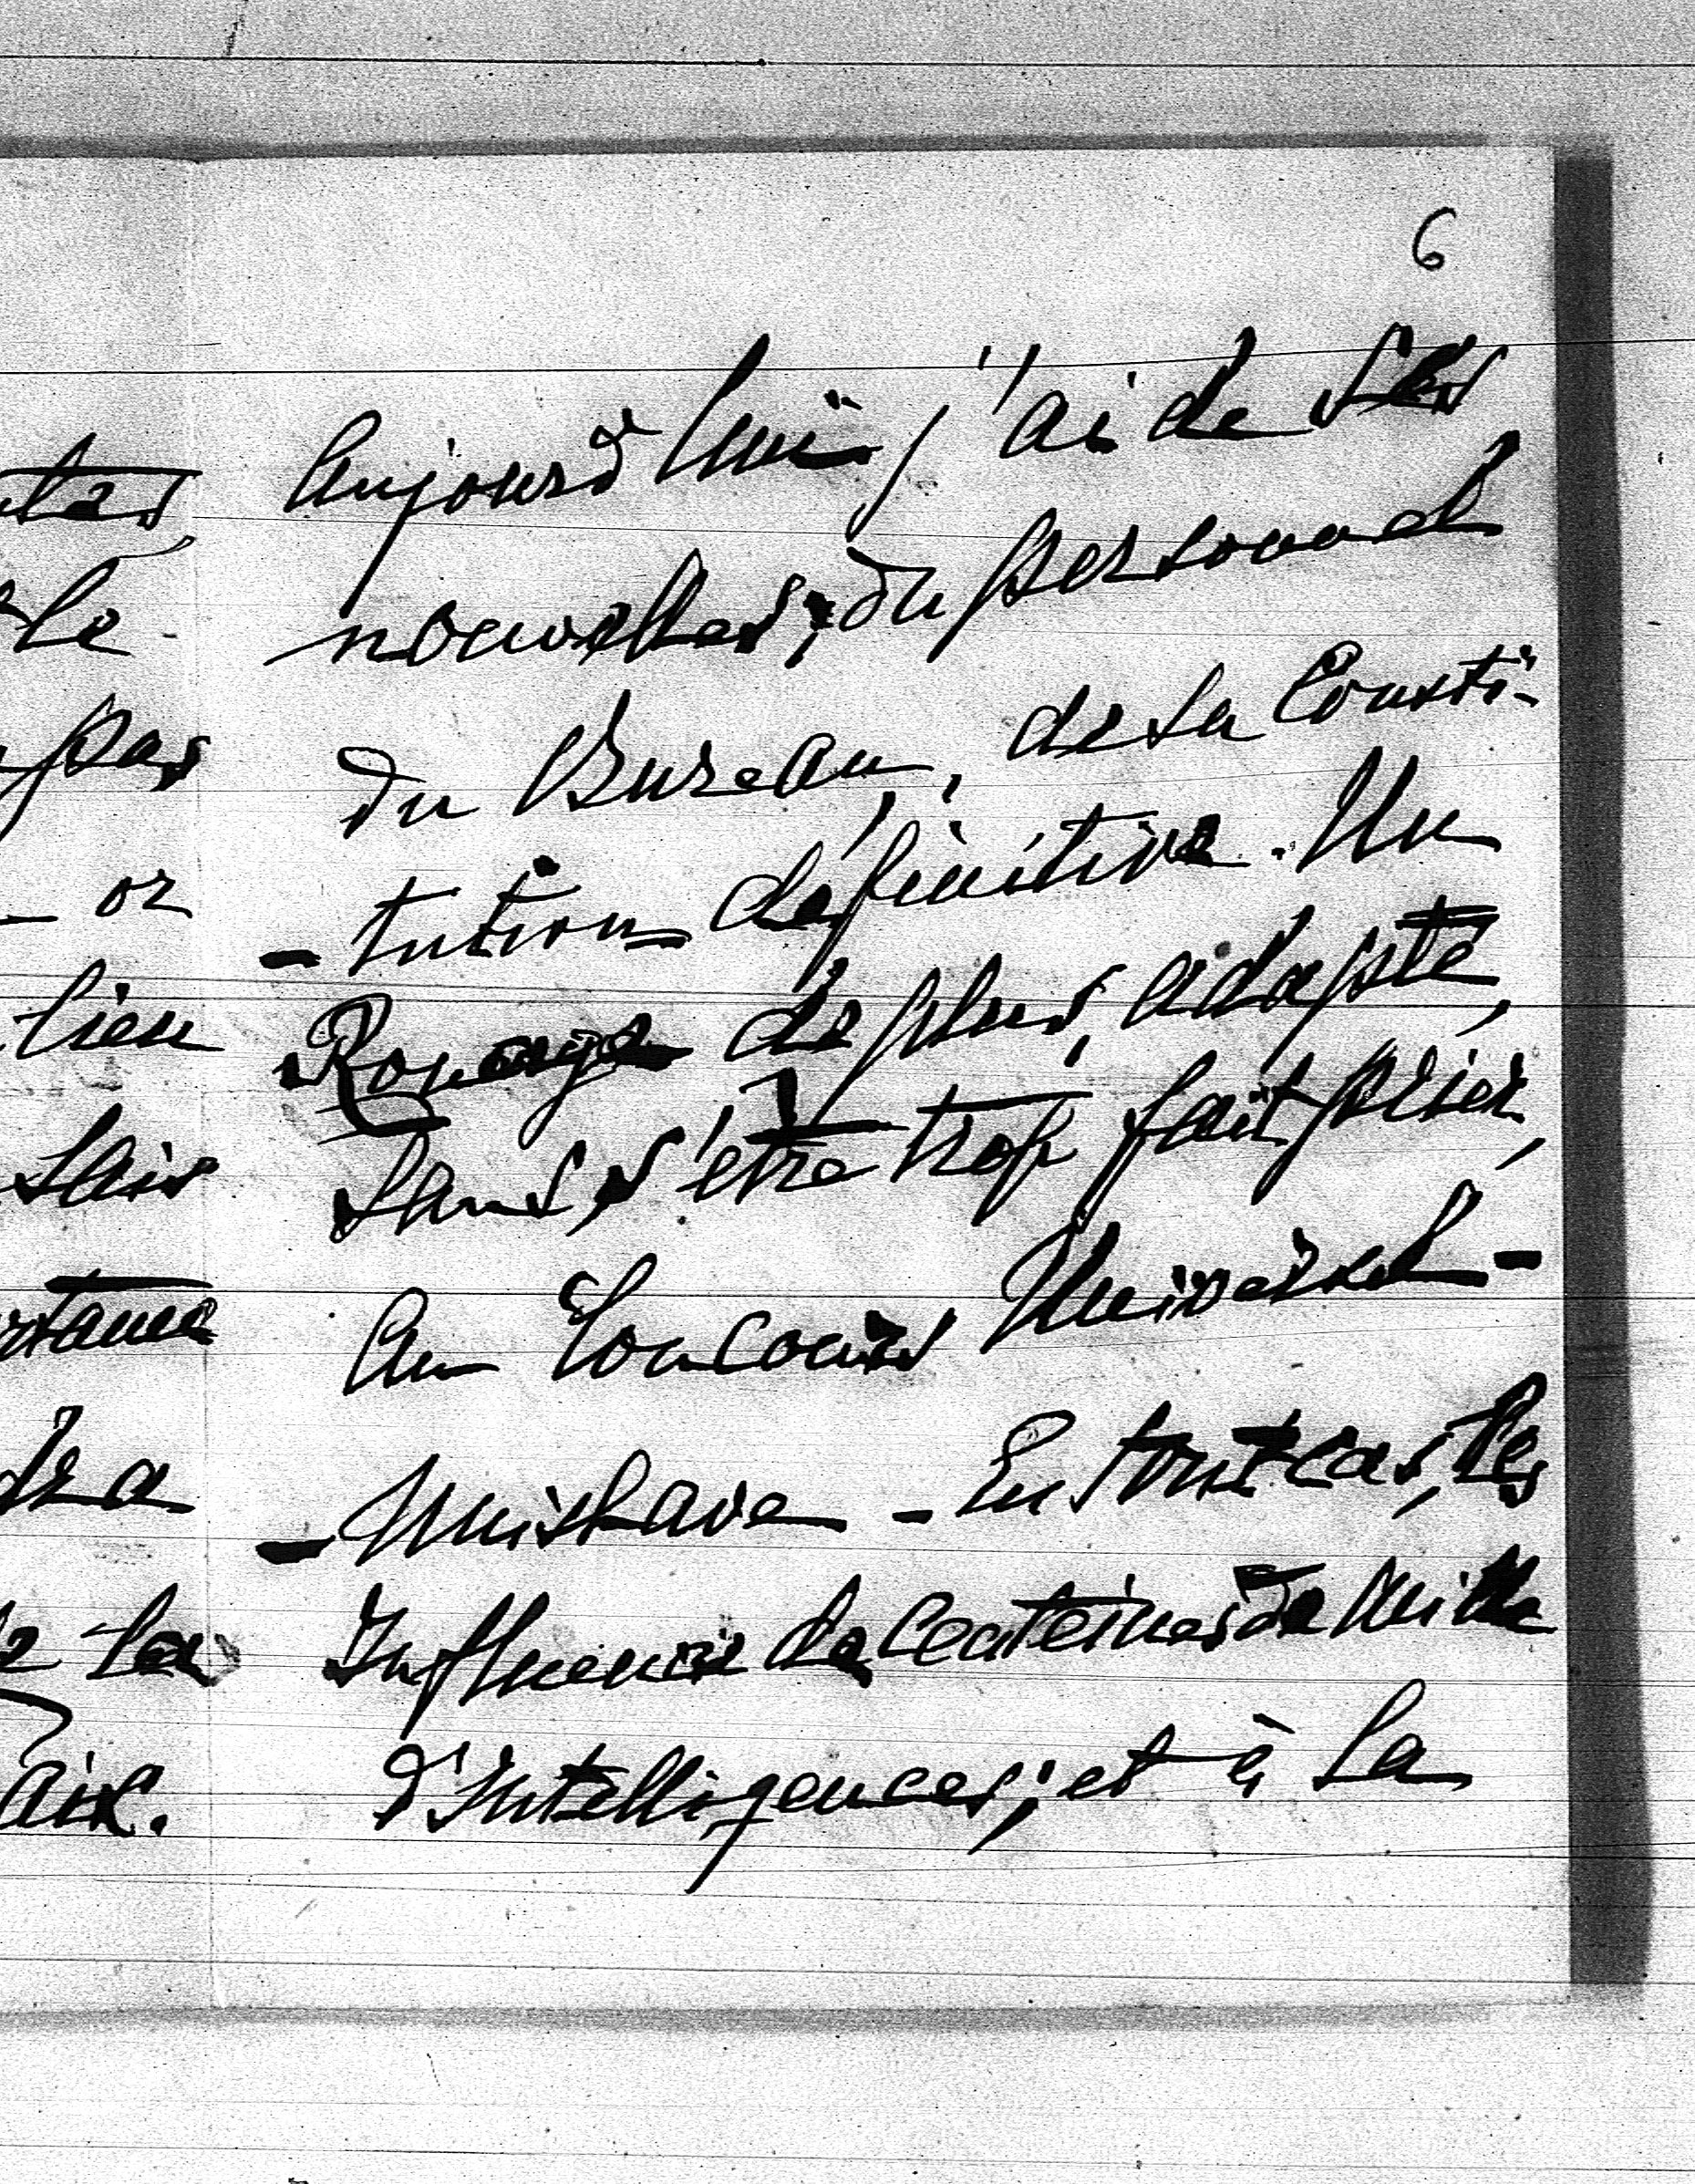 6
Aujourd'hui j'ai de ses
nouvelles; du personnel
du Bureau, de sa Consti-
-tution définitive. Un
Rouage de plus, adapté,
sans s'être trop fait prier,
au Concours Universel-
En tout cas, les
Influence de Centaines de Mille
d'Intelligences; et à la
tes
le
pas
or
lien
sais
stance
dra
la
aix.